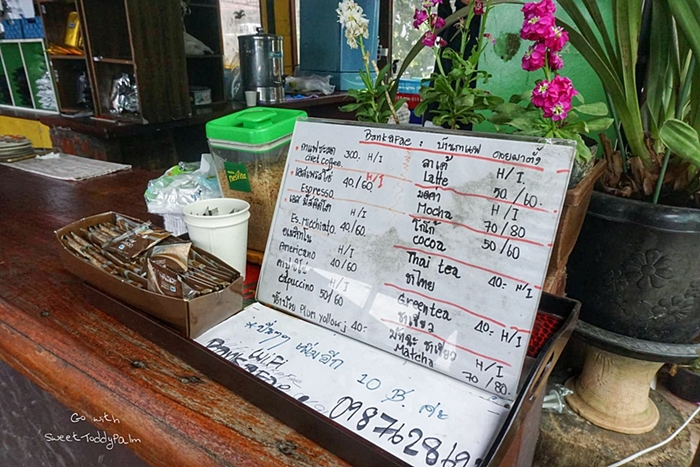 Bankafae : บ้านกาแฟ ดอยผาตั้ง
กาแฟชะมด 300.- H/I
chet coffee
เอสเพรสโซ่ 40/60
Espresso H/I
เอส มัคคิอาโต 40/60
Es. Micchiato H/I
อเมริกาโน่ 40/60
Americano H/I
คาปูชิโน่ 40/60
Cappuccino H/I
50/60
Plum yellow 40:-
ลาเต้ H/I
Latte 50/60
มอคค่า H/I
Mocha 70/80
โกโก้ H/I
cocoa 50/60
Thai tea H/I
ชาไทย 40:-
Greentea H/I
ชาเขียว 40:-
มัทฉะ ชาเขียว H/I
Matcha 70/80
WiFi
10 ฿.
Go with
Sweet-ToddyPalm